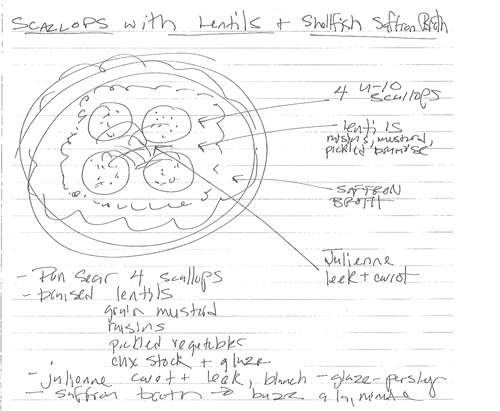 SCALLOPS with Lentils + Shellfish Saffron Broth
4 U-10 Scallops
lentils
raisins, mustard,
pickled brunoise
SAFFRON
BROTH
Julienne
leek + carot
- Pan sear 4 scallops
- braised lentils
grain mustard
raisins
pickled vegetables
chx stock + glaze
- julienne carot + leek, blanch - glaze - parsley
- saffron broth → buzz a la minute